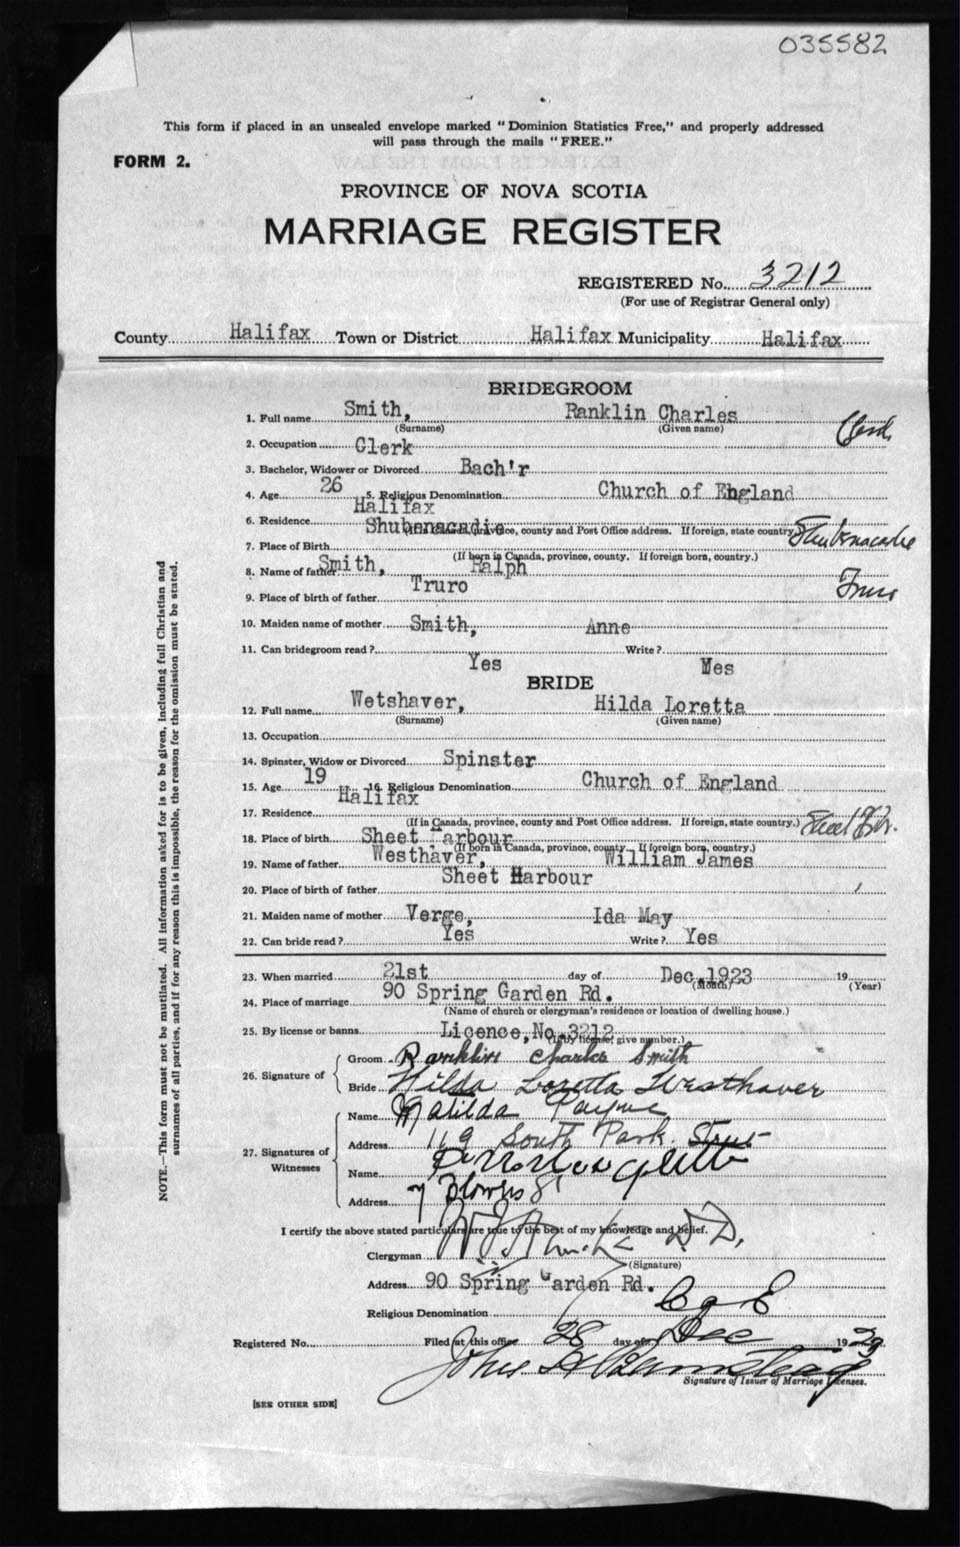 035582
This form if placed in an unsealed envelope marked "Dominion Statistics Free," and properly addressed
will pass through the mails "FREE."
FORM 2.
PROVINCE OF NOVA SCOTIA
MARRIAGE REGISTER
REGISTERED No. 3212
(For use of Registrar General only)
County Halifax Town or District Halifax Municipality Halifax
BRIDEGROOM
1. Full name Smith, Ranklin Charles
(Surname) (Given name)
2. Occupation Clerk
3. Bachelor, Widower or Divorced Bach'r
4. Age 26 5. Religious Denomination Church of England
Halifax
6. Residence
(If in Canada, province, county and Post Office address. If foreign, state country.)
Shubenacadie Shubenacadie
7. Place of Birth
(If born in Canada, province, county. If foreign born, country.)
8. Name of father Smith, Ralph
9. Place of birth of father Truro Truro
10. Maiden name of mother Smith, Anne
11. Can bridegroom read? Yes Write? Mes
BRIDE
12. Full name Wetshaver, Hilda Loretta
(Surname) (Given name)
13. Occupation
14. Spinster, Widow or Divorced Spinster
15. Age 19 16. Religious Denomination Church of England
Halifax
17. Residence
(If in Canada, province, county and Post Office address. If foreign, state country.)
18. Place of birth Sheet Harbour
(If born in Canada, province, county. If foreign born, country.)
19. Name of father Westhaver, William James
Sheet Harbour
20. Place of birth of father
21. Maiden name of mother Verge, Ida May
22. Can bride read? Yes Write? Yes
23. When married 21st day of Dec. 1923 19
(Month) (Year)
24. Place of marriage 90 Spring Garden Rd.
(Name of church or clergyman's residence or location of dwelling house.)
25. By license or banns Licence, No. 3212
(If by license, give number.)
26. Signature of
Groom Ranklin Charles Smith
Bride Hilda Loretta Westhaver
27. Signatures of
Witnesses
Name Matilda Payne
Address 119 South Park Street
Name
Address 7 Blowers St
I certify the above stated particulars are true to the best of my knowledge and belief.
Clergyman D.D.
(Signature)
Address 90 Spring Garden Rd.
Religious Denomination C of E
Registered No. Filed at this office 28 day of Dec 1923
Signature of Issuer of Marriage Licenses.
[SEE OTHER SIDE]
NOTE.—This form must not be mutilated. All information asked for is to be given, including full Christian and
surnames of all parties, and if for any reason this is impossible, the reason for the omission must be stated.